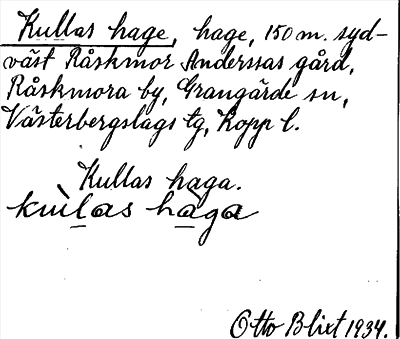 Kullas hage, hage, 150 m. syd-
väst Råskmor Anderssas gård,
Råskmora by, Grangärde sn,
Västerbergslags tg, Kopp l.
Kullas haga.
kùlas hàga
Otto Blixt 1934.